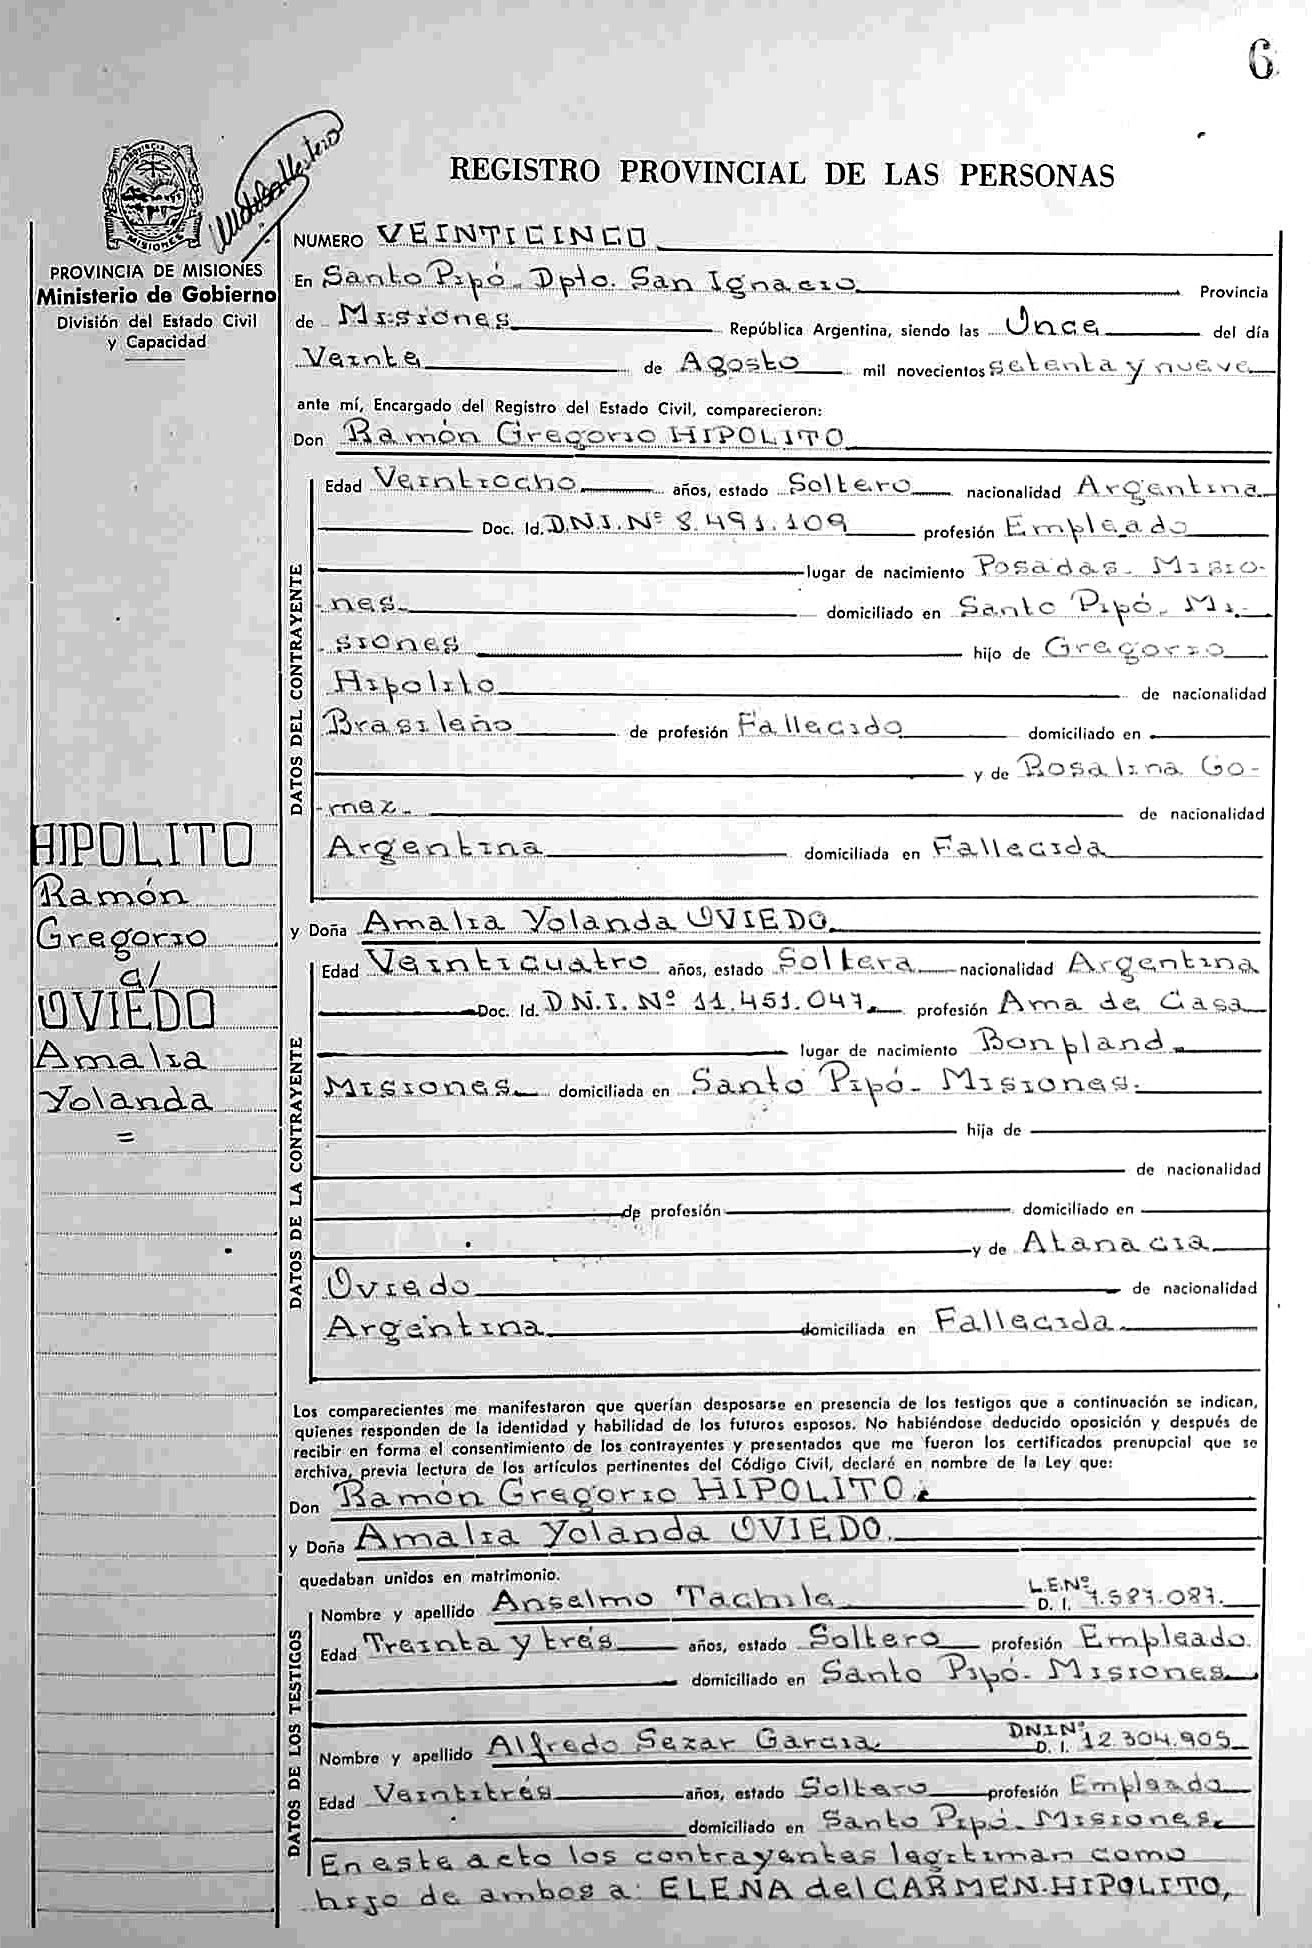 6
REGISTRO PROVINCIAL DE LAS PERSONAS
PROVINCIA DE
MISIONES
PROVINCIA DE MISIONES
Ministerio de Gobierno
División del Estado Civil
y Capacidad
HIPOLITO
Ramón
Gregorio
c/
OVIEDO
Amalia
Yolanda
=
NUMERO VEINTICINCO
En Santo Pipó - Dpto. San Ignacio Provincia
de Misiones República Argentina, siendo las Once del día
Veinte de Agosto mil novecientos setenta y nueve
ante mí, Encargado del Registro del Estado Civil, comparecieron:
Don Ramón Gregorio HIPOLITO
DATOS DEL CONTRAYENTE
Edad Veintiocho años, estado Soltero nacionalidad Argentina
Doc. Id. D.N.I. Nº 8.491.109 profesión Empleado
lugar de nacimiento Posadas - Misio-
nes - domiciliado en Santo Pipó - Mi-
siones hijo de Gregorio
Hipolito de nacionalidad
Brasileño de profesión Fallecido domiciliado en
y de Rosalina Go-
mez - de nacionalidad
Argentina domiciliada en Fallecida
y Doña Amalia Yolanda OVIEDO
DATOS DE LA CONTRAYENTE
Edad Veinticuatro años, estado Soltera nacionalidad Argentina
Doc. Id. D.N.I. Nº 11.451.047. profesión Ama de Casa
lugar de nacimiento Bonpland -
Misiones domiciliada en Santo Pipó - Misiones.
hija de
de nacionalidad
de profesión domiciliado en
y de Atanacia
Oviedo de nacionalidad
Argentina domiciliada en Fallecida.
Los comparecientes me manifestaron que querían desposarse en presencia de los testigos que a continuación se indican,
quienes responden de la identidad y habilidad de los futuros esposos. No habiéndose deducido oposición y después de
recibir en forma el consentimiento de los contrayentes y presentados que me fueron los certificados prenupcial que se
archiva, previa lectura de los artículos pertinentes del Código Civil, declaré en nombre de la Ley que:
Don Ramón Gregorio HIPOLITO.
y Doña Amalia Yolanda OVIEDO.
quedaban unidos en matrimonio.
DATOS DE LOS TESTIGOS
Nombre y apellido Anselmo Tachile L.E.Nº D. I. 7.587.087.
Edad Treinta y trés años, estado Soltero profesión Empleado.
domiciliado en Santo Pipó - Misiones
Nombre y apellido Alfredo Sezar Garcia DNI Nº D. I. 12.304.905
Edad Veintitrés años, estado Soltero profesión Empleado
domiciliado en Santo Pipó - Misiones.
En este acto los contrayentes legitiman como
hijo de ambos a: ELENA del CARMEN HIPOLITO,